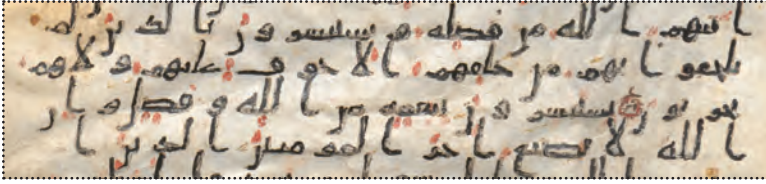 اتيهم الله من فضله ويستبشرون بالذين لم
يلحقوا بهم من خلفهم الا خوف عليهم ولا هم
يحزنون يستبشرون بنعمة من الله وفضل وان
الله لا يضيع اجر المومنين الذين ا